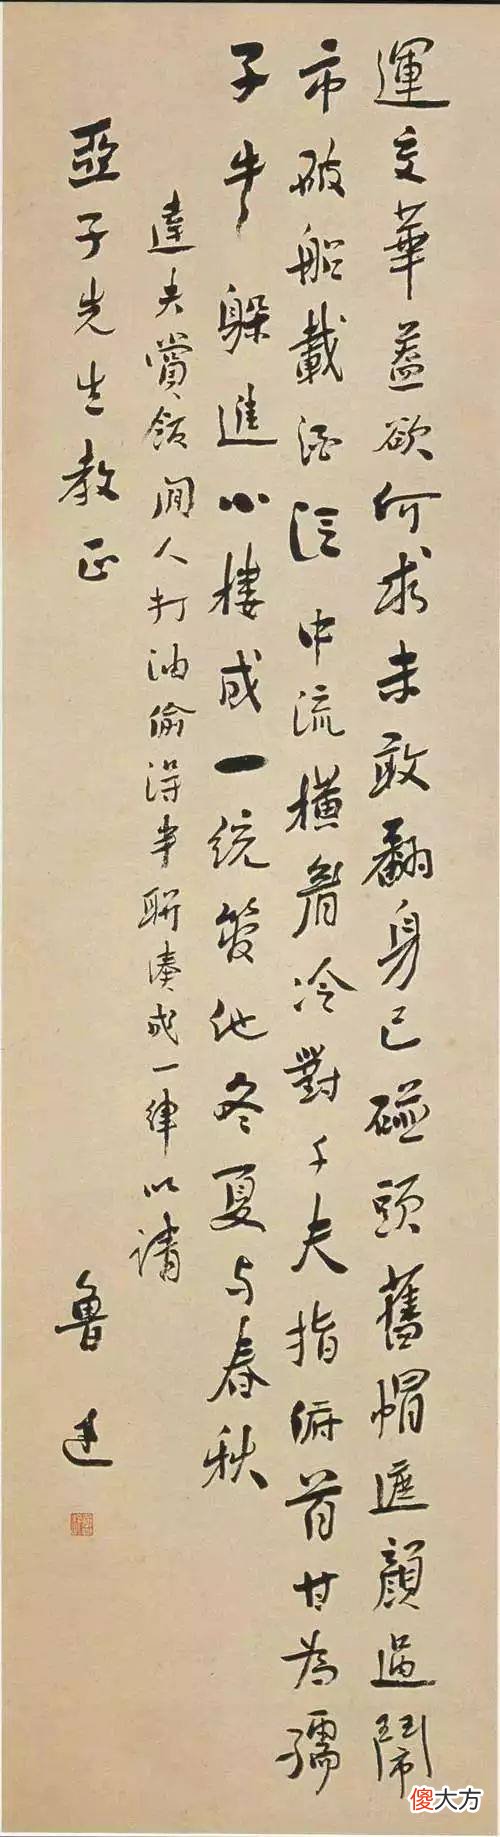 運交華蓋欲何求未敢翻身已碰頭舊帽遮顏過鬧
市破船載酒泛中流橫眉冷對千夫指俯首甘為孺
子牛躲進小樓成一統管他冬夏与春秋
達夫賞飯閒人打油偷得半聯湊成一律以請
亞子先生教正
魯迅
傻大方